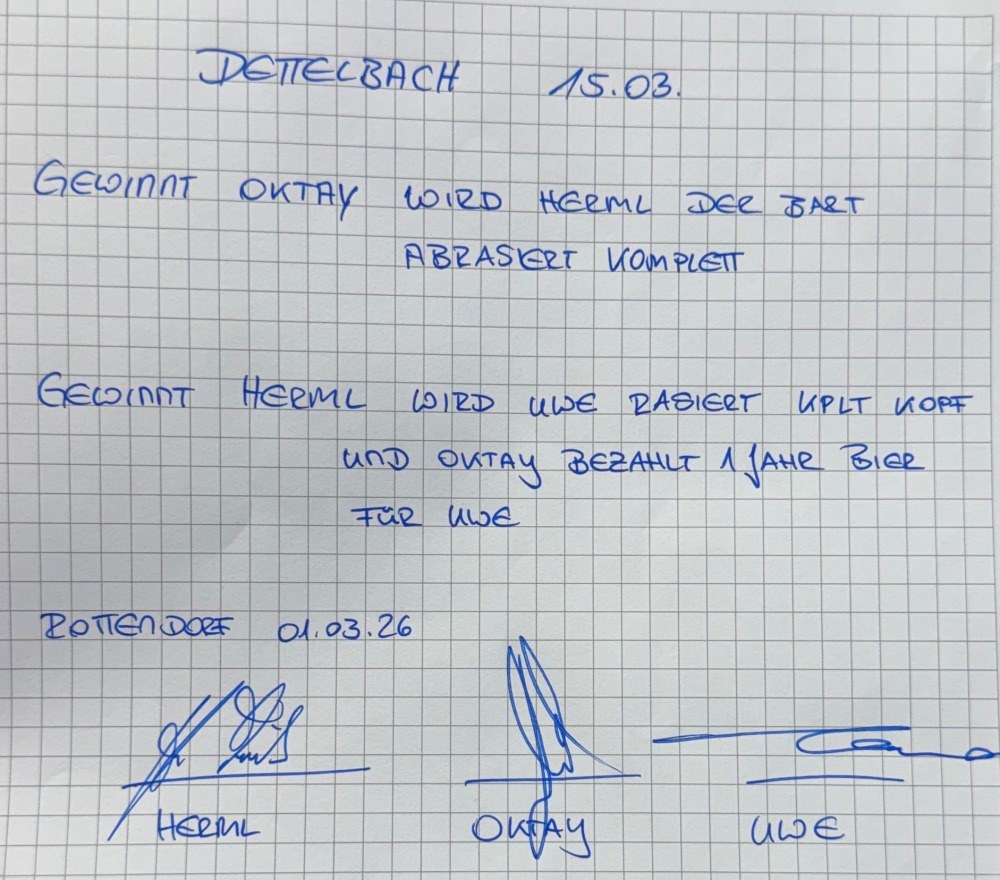 DETTELBACH 15.03.
GEWINNT OKTAY WIRD HERML DER BART
ABRASIERT KOMPLETT
GEWINNT HERML WIRD UWE RASIERT KPLT KOPF
UND OKTAY BEZAHLT 1 JAHR BIER
FÜR UWE
ROTTENDORF 01.03.26
HERML OKTAY UWE